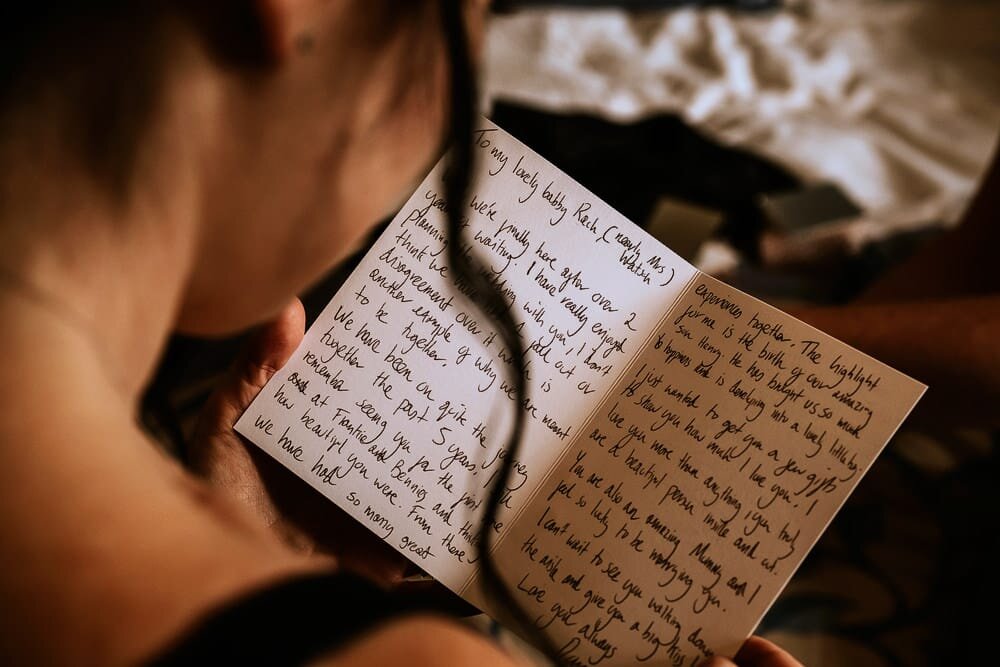 To my lovely babby Rach, (nearly Mrs)
Watson
we're finally here after over 2
years of waiting. I have really enjoyed
planning the wedding with you, I don't
think we have had a fall out or
disagreement over it which is
another example of why we are meant
to be together.
We have been on quite the journey
together the past 5 years, I still
remember seeing you for the first time
at Frankie and Bennies, and thinking
how beautiful you were. From there
we have had so many great
experiences together. The highlight
for me is the birth of our amazing
son Henry. He has brought us so much
happiness and is developing into a lovely little boy.
I just wanted to get you a few gifts
to show you how much I love you. I
love you more than anything, you truly
are a beautiful person inside and out.
You are also an amazing Mummy and I
feel so lucky to be marrying you.
I can't wait to see you walking down
the aisle and give you a big kiss!
Love you always